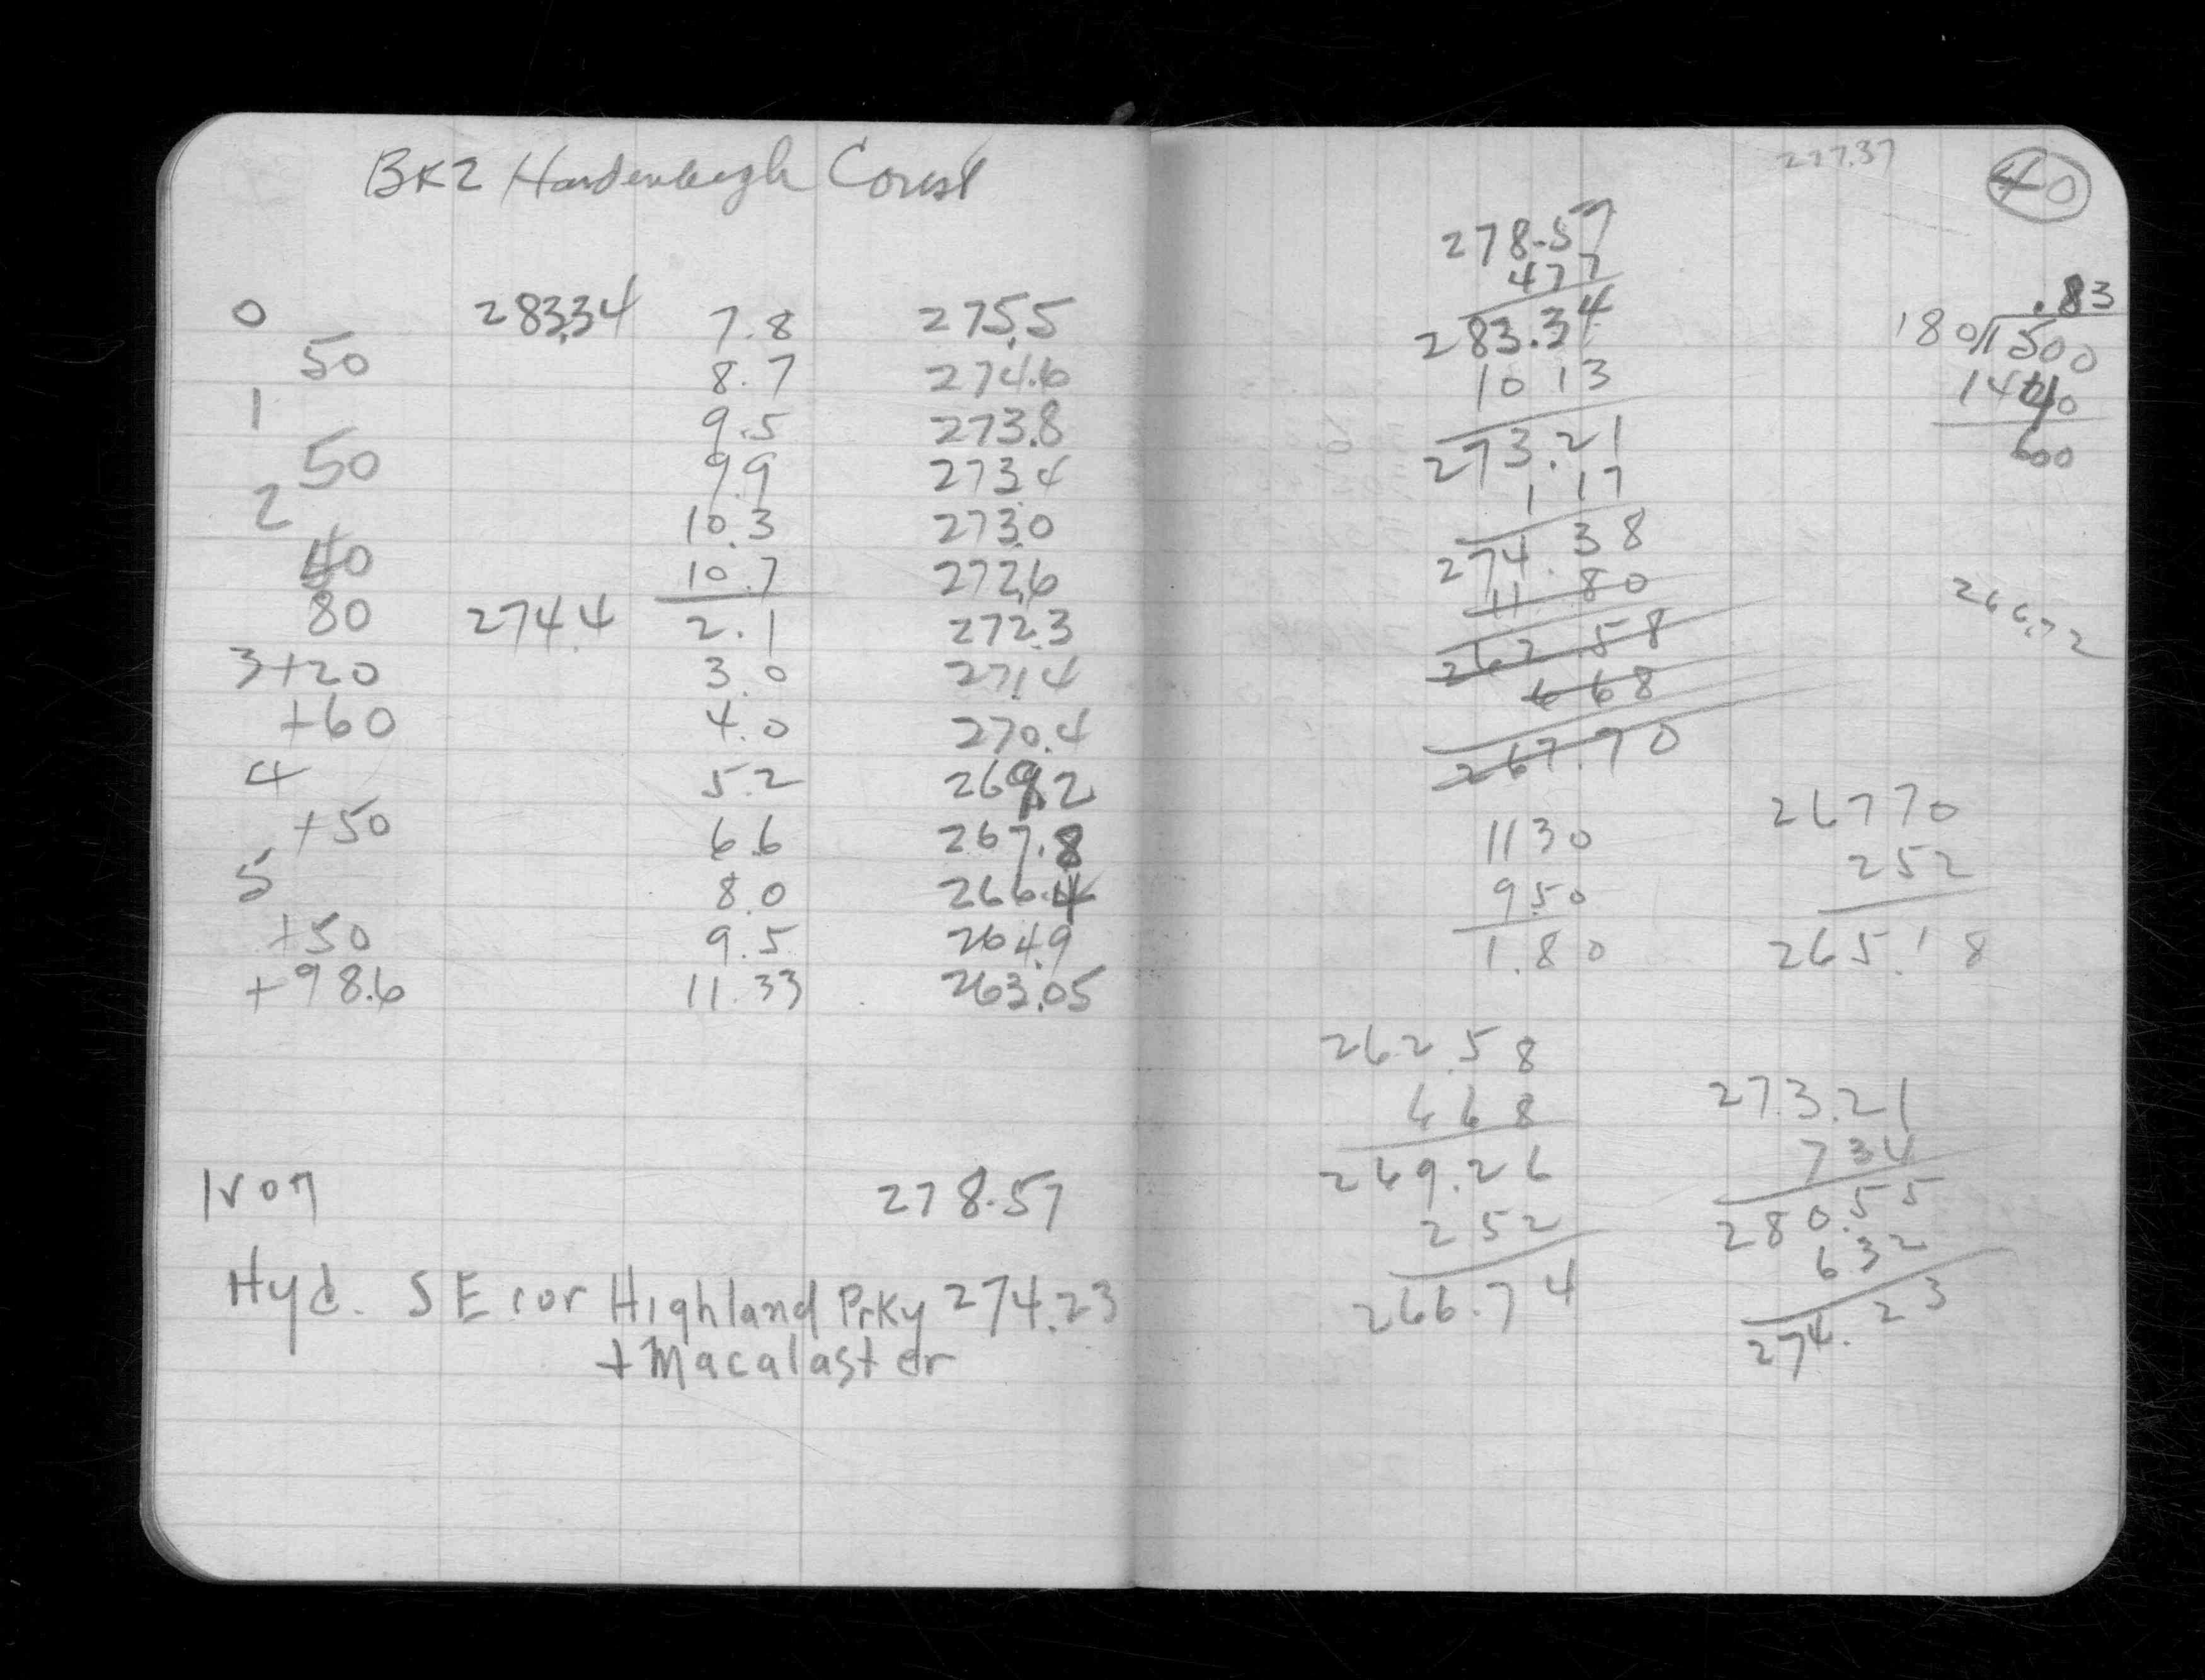 BK2 Hardenbergh Const
0 283.34 7.8 275.5
50 8.7 274.6
1 9.5 273.8
50 9.9 273.4
2 10.3 273.0
40 10.7 272.6
80 274.4 2.1 272.3
3+20 3.0 271.4
+60 4.0 270.4
4 5.2 269.2
+50 6.6 267.8
5 8.0 266.4
+50 9.5 264.9
+98.6 11.33 263.05
Iron 278.57
Hyd. SE cor Highland Prky 274.23
+ Macalaster
277.37
40
278.57
477
283.34
10 13
273.21
1 17
274.38
11 80
262 58
4 68
267.70
.83
180 1500
1440
600
266.72
1130
9.50
1.80
26770
252
265.18
262.58
668
269.26
252
266.74
273.21
734
280.55
632
274.23